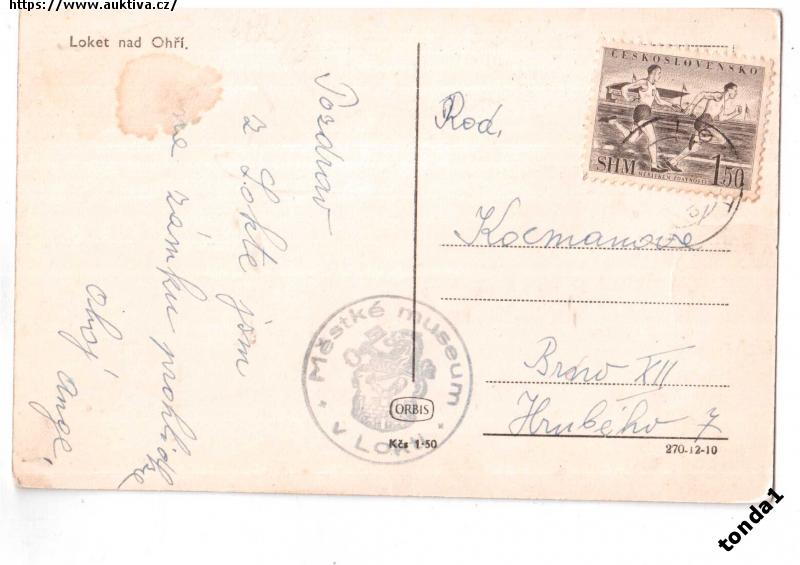 https://www.auktiva.cz/
Loket nad Ohří.
Pozdrav
z Lokte jsm
zámku prohlidce
Ahoj
Rod.
Kocmanove
Brno XII
Hrubého 7
ČESKOSLOVENSKO
SHM 1.50
Městké museum
v Lokti
ORBIS
Kčs 1·50
270-12-10
tonda1